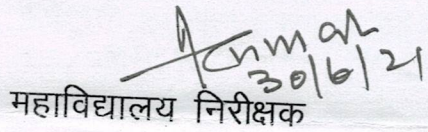 30/6/21
महाविद्यालय निरीक्षक